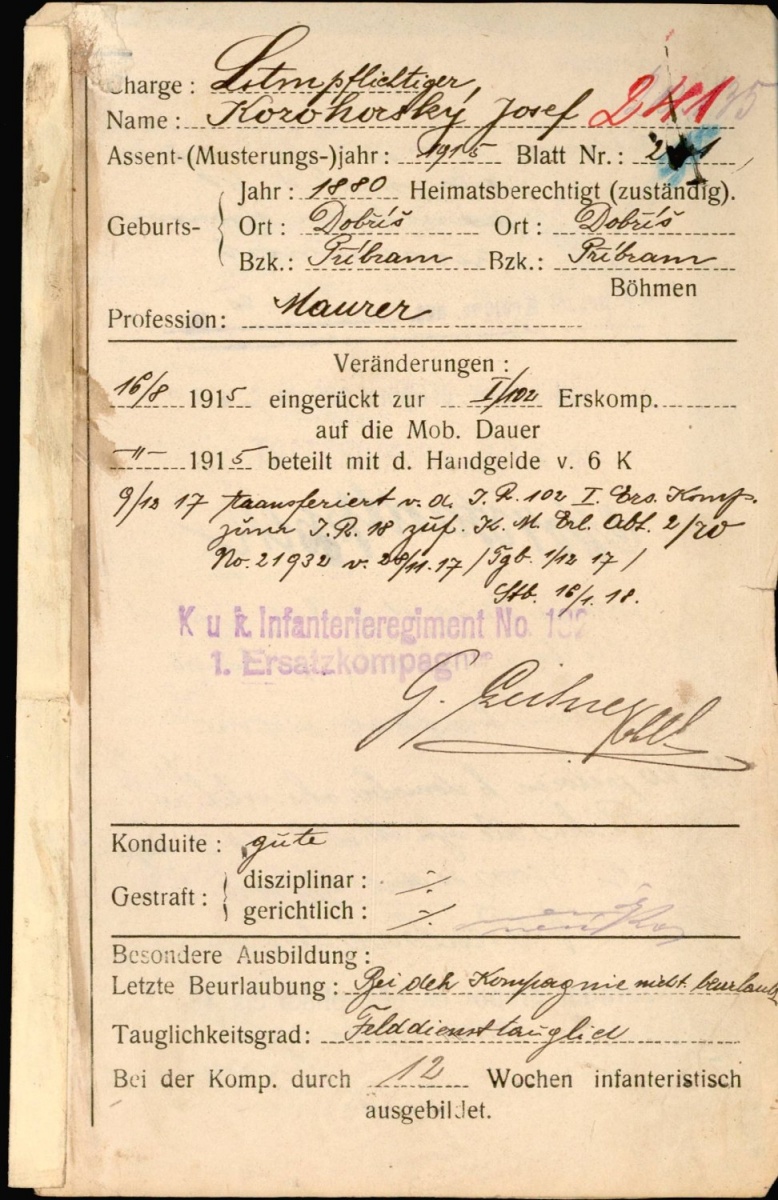 Charge: Lstmpflichtiger
Name: Korohorský Josef 241
Assent-(Musterungs-)jahr: 1915 Blatt Nr.: 241
Jahr: 1880 Heimatsberechtigt (zuständig).
Geburts- Ort: Dobříš Ort: Dobříš
Bzk.: Příbram Bzk.: Příbram
Böhmen
Profession: Maurer
Veränderungen:
16/8 1915 eingerückt zur I/102 Erskomp.
auf die Mob. Dauer
-"- 1915 beteilt mit d. Handgelde v. 6 K
9/12 17 transferiert v. d. I. R. 102 I. Ers. Komp.
zum I. R. 18 zuf. K. M. Erl. Abt. 2/W
No. 21932 v. 28/11.17 / Tgb. 1/12 17 /
Stb. 16/1. 18.
K u k Infanterieregiment No. 102
1. Ersatzkompagnie
G.
Konduite: gute
Gestraft: disziplinar: ./.
gerichtlich: ./.
Besondere Ausbildung:
Letzte Beurlaubung: Bei der Kompagnie nicht beurlaubt
Tauglichkeitsgrad: Felddiensttauglich
Bei der Komp. durch 12 Wochen infanteristisch
ausgebildet.